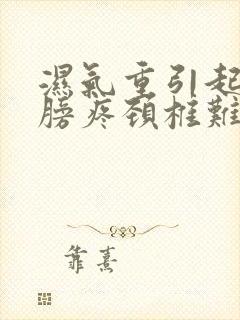 濕氣重引起
膀疼頸椎難
靠熹